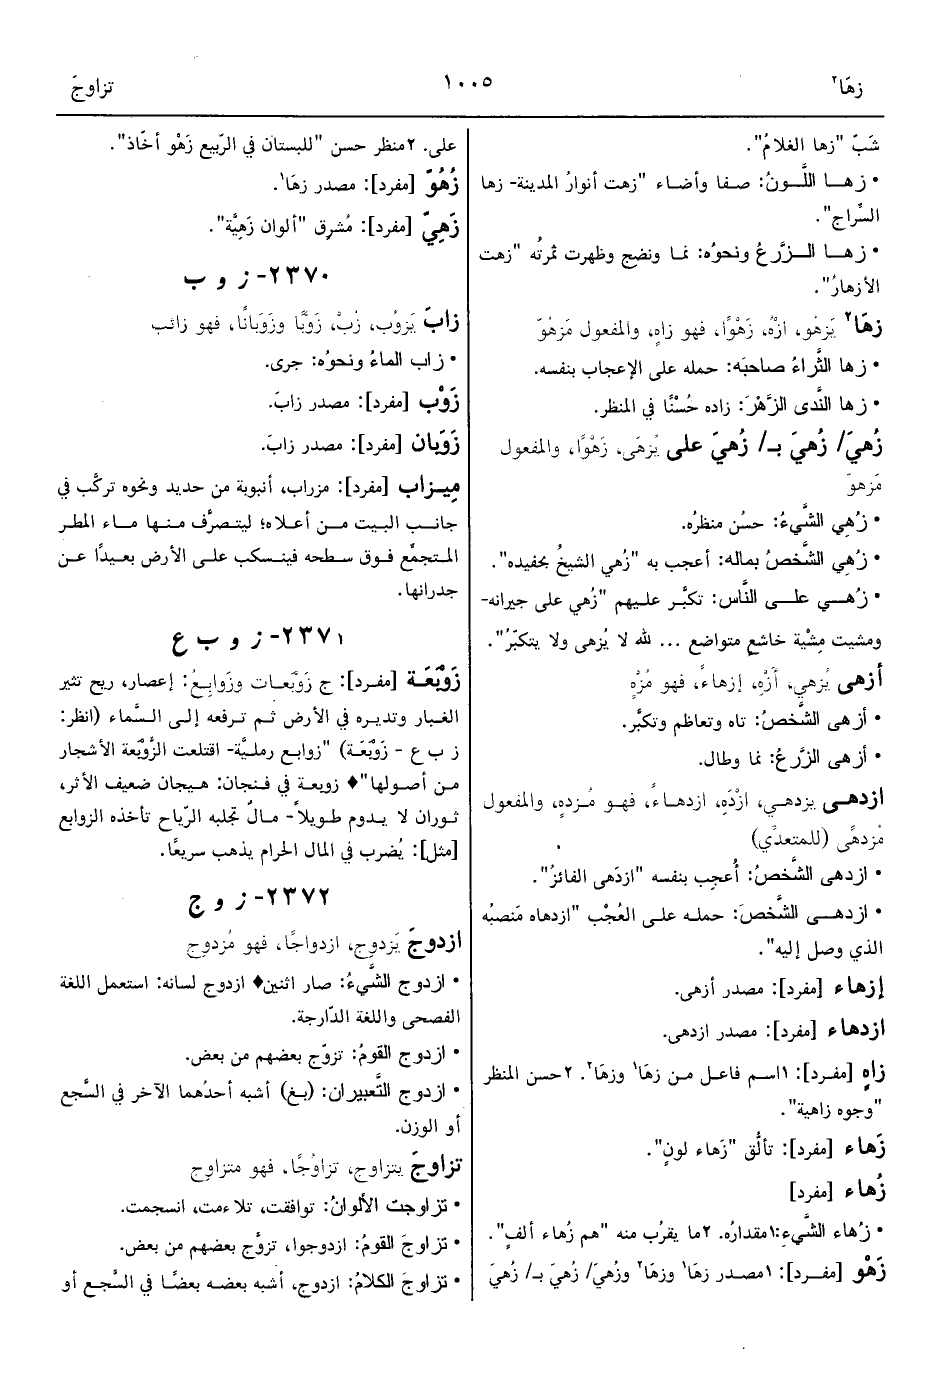 زهَا٢
١٠٠٥
تزاوجَ
شَبّ "زها الغلامُ".
• زهـا اللَّـونُ: صفا وأضاء "زهت أنوارُ المدينة- زها
السِّراج".
• زهـا الـزَّرعُ ونحوُه: نما ونضج وظهرت ثمرتُه "زهت
الأزهارُ".
زهَا٢ يَزهُو، ازْهُ، زَهْوًا، فهو زاهٍ، والمفعول مَزهُوّ
• زها الثَّراءُ صاحبَه: حمله على الإعجاب بنفسه.
• زها النَّدى الزَّهْرَ: زاده حُسْنًا في المنظر.
زُهيَ/ زُهيَ بـ/ زُهيَ على يُزهَى، زَهْوًا، والمفعول
مَزهوّ
• زُهِي الشَّيءُ: حسُن منظرُه.
• زُهِي الشَّخصُ بماله: أعجب به "زُهي الشيخُ بحفيده".
• زُهـي علـى النَّاس: تكبَّر علـيهم "زُهي على جيرانه-
ومشيت مِشْية خاشع متواضع ... لله لا يُزهى ولا يتكبّرُ".
أزهى يُزهي، أَزْهِ، إزهاءً، فهو مُزْهٍ
• أزهى الشَّخصُ: تاه وتعاظم وتكبَّر.
• أزهى الزَّرعُ: نما وطال.
ازدهـى يزدهـي، ازْدَهِ، ازدهـاءً، فهـو مُـزدهٍ، والمفعول
مُزدهًى (للمتعدِّي)
• ازدهى الشَّخصُ: أُعجب بنفسه "ازدَهى الفائزُ".
• ازدهـى الشَّخصَ: حملـه علـى العُجْب "ازدهاه مَنصبُه
الذي وصل إليه".
إزهاء [مفرد]: مصدر أزهى.
ازدهاء [مفرد]: مصدر ازدهى.
زاهٍ [مفـرد]: ١اسـم فاعـل مـن زهَا١ وزهَا٢. ٢حسن المنظر
"وجوه زاهية".
زَهاء [مفرد]: تألُّق "زَهاء لونٍ".
زُهاء [مفرد]
• زُهاء الشَّيءِ:١مقدارُه. ٢ما يقرُب منه "هم زُهاء ألفٍ".
زَهْو [مفـرد]: ١مصـدر زهَا١ وزهَا٢ وزُهيَ/ زُهيَ بـ/ زُهيَ
على. ٢منظر حسن "للبستان في الرّبيع زَهْو أخّاذ".
زُهُوّ [مفرد]: مصدر زهَا١.
زَهِيّ [مفرد]: مُشرق "ألوان زَهِيَّة".
٢٣٧٠- ز و ب
زابَ يَزوُب، زُبْ، زَوْبًا وزَوَبانًا، فهو زائب
• زاب الماءُ ونحوُه: جرى.
زَوْب [مفرد]: مصدر زابَ.
زَوَبان [مفرد]: مصدر زابَ.
مِيـزاب [مفرد]: مزراب، أنبوبة من حديد ونحوه تركَّب في
جانـب البيت مـن أعلاه؛ ليتصرَّف منـها مـاء المطـر
المتجمِّع فـوق سطحه فينسكب علـى الأرض بعيـدًا عـن
جدرانها.
٢٣٧١- ز و ب ع
زَوْبَعَة [مفـرد]: ج زَوْبَعـات وزَوابِـعُ: إعصار، ريح تثير
الغبار وتديره في الأرض ثـم ترفعه إلـى السَّماء (انظر:
ز ب ع - زَوْبَعَة) "زوابـع رملـيّة- اقتلعت الزَّوْبَعة الأشجار
مـن أصـولها"♦ زوبعـة في فـنجان: هيجان ضعيف الأثر،
ثـوران لا يـدوم طويلاً- مـالٌ تجلبه الرِّياح تأخذه الزوابع
[مثل]: يُضرب في المال الحرام يذهب سريعًا.
٢٣٧٢- ز و ج
ازدوجَ يَزدوج، ازدواجًا، فهو مُزدوِج
• ازدوج الشَّيءُ: صار اثنين♦ ازدوج لسانه: استعمل اللغة
الفصحى واللغة الدّارجة.
• ازدوج القومُ: تزوّج بعضهم من بعض.
• ازدوج التَّعبيران: (بغ) أشبه أحدُهما الآخر في السَّجع
أو الوزن.
تزاوجَ يتزاوج، تزاوُجًا، فهو متزاوِج
• تزاوجت الألوانُ: توافقت، تلاءمت، انسجمت.
• تزاوجَ القومُ: ازدوجوا، تزوَّج بعضهم من بعض.
• تزاوجَ الكلامُ: ازدوج، أشبه بعضه بعضًا في السَّجع أو